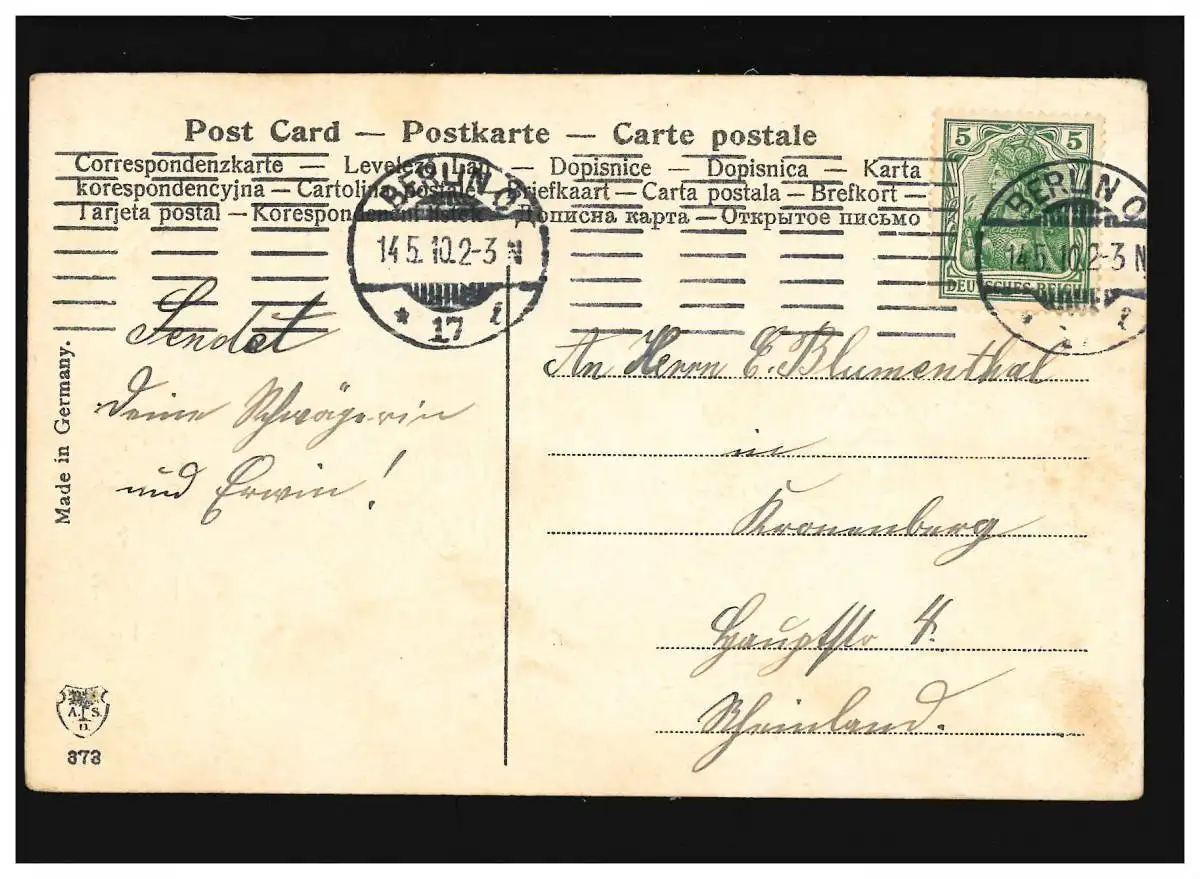 Post Card — Postkarte — Carte postale
Correspondenzkarte — Levelező Lap — Dopisnice — Dopisnica — Karta
korespondencyjna — Cartolina postale — Briefkaart — Carta postala — Brefkort —
Tarjeta postal — Korespondenční lístek — Дописна карта — Открытое письмо
5 5
DEUTSCHES REICH
BERLIN O
14.5.10.2-3 N
* 17 l
BERLIN O
14.5.10.2-3 N
* l
Sendet
Deine Schwägerin
und Erwin!
An Herrn E. Blumenthal
in
Kronenberg
Hauptstr 4.
Rheinland.
Made in Germany.
A. S.
B.
373